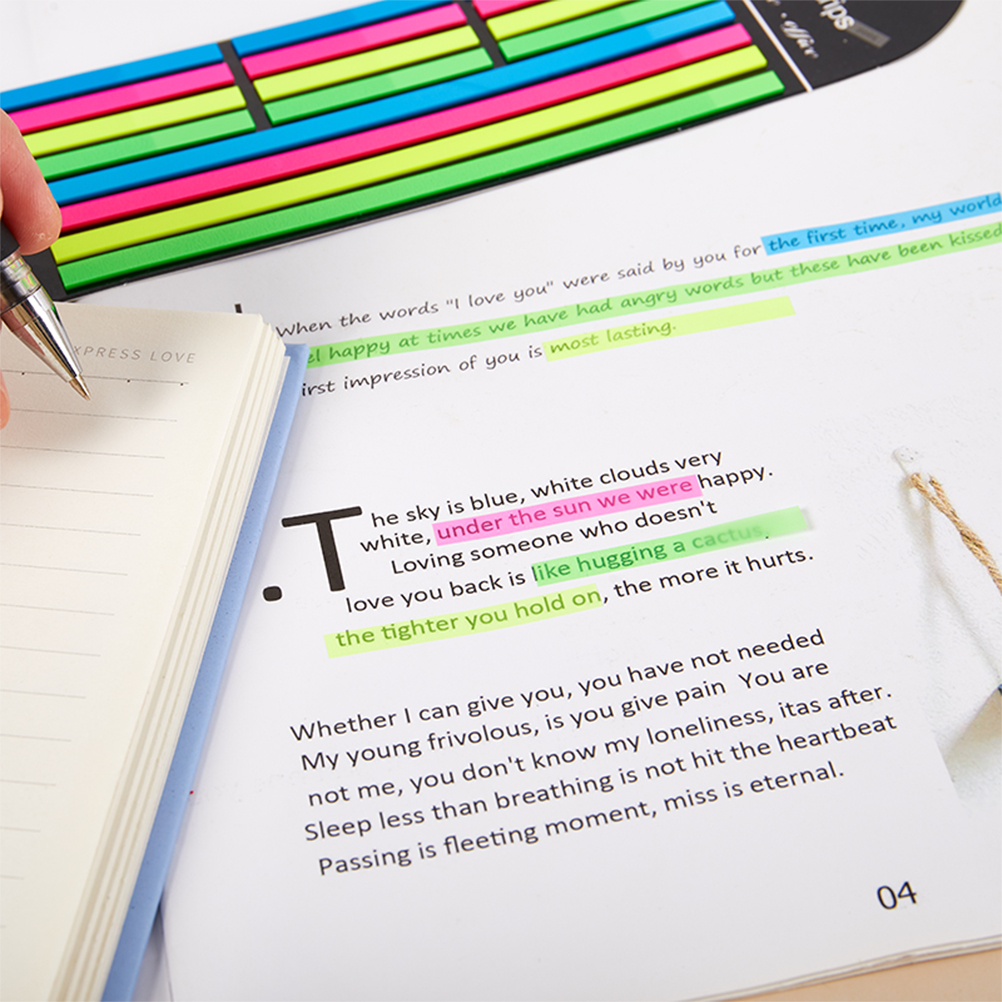 rips
office
When the words "I love you" were said by you for the first time, my world
el happy at times we have had angry words but these have been kissed
irst impression of you is most lasting.
XPRESS LOVE
The sky is blue, white clouds very
white, under the sun we were happy.
Loving someone who doesn't
love you back is like hugging a cactus.
the tighter you hold on, the more it hurts.
Whether I can give you, you have not needed
My young frivolous, is you give pain You are
not me, you don't know my loneliness, itas after.
Sleep less than breathing is not hit the heartbeat
Passing is fleeting moment, miss is eternal.
04